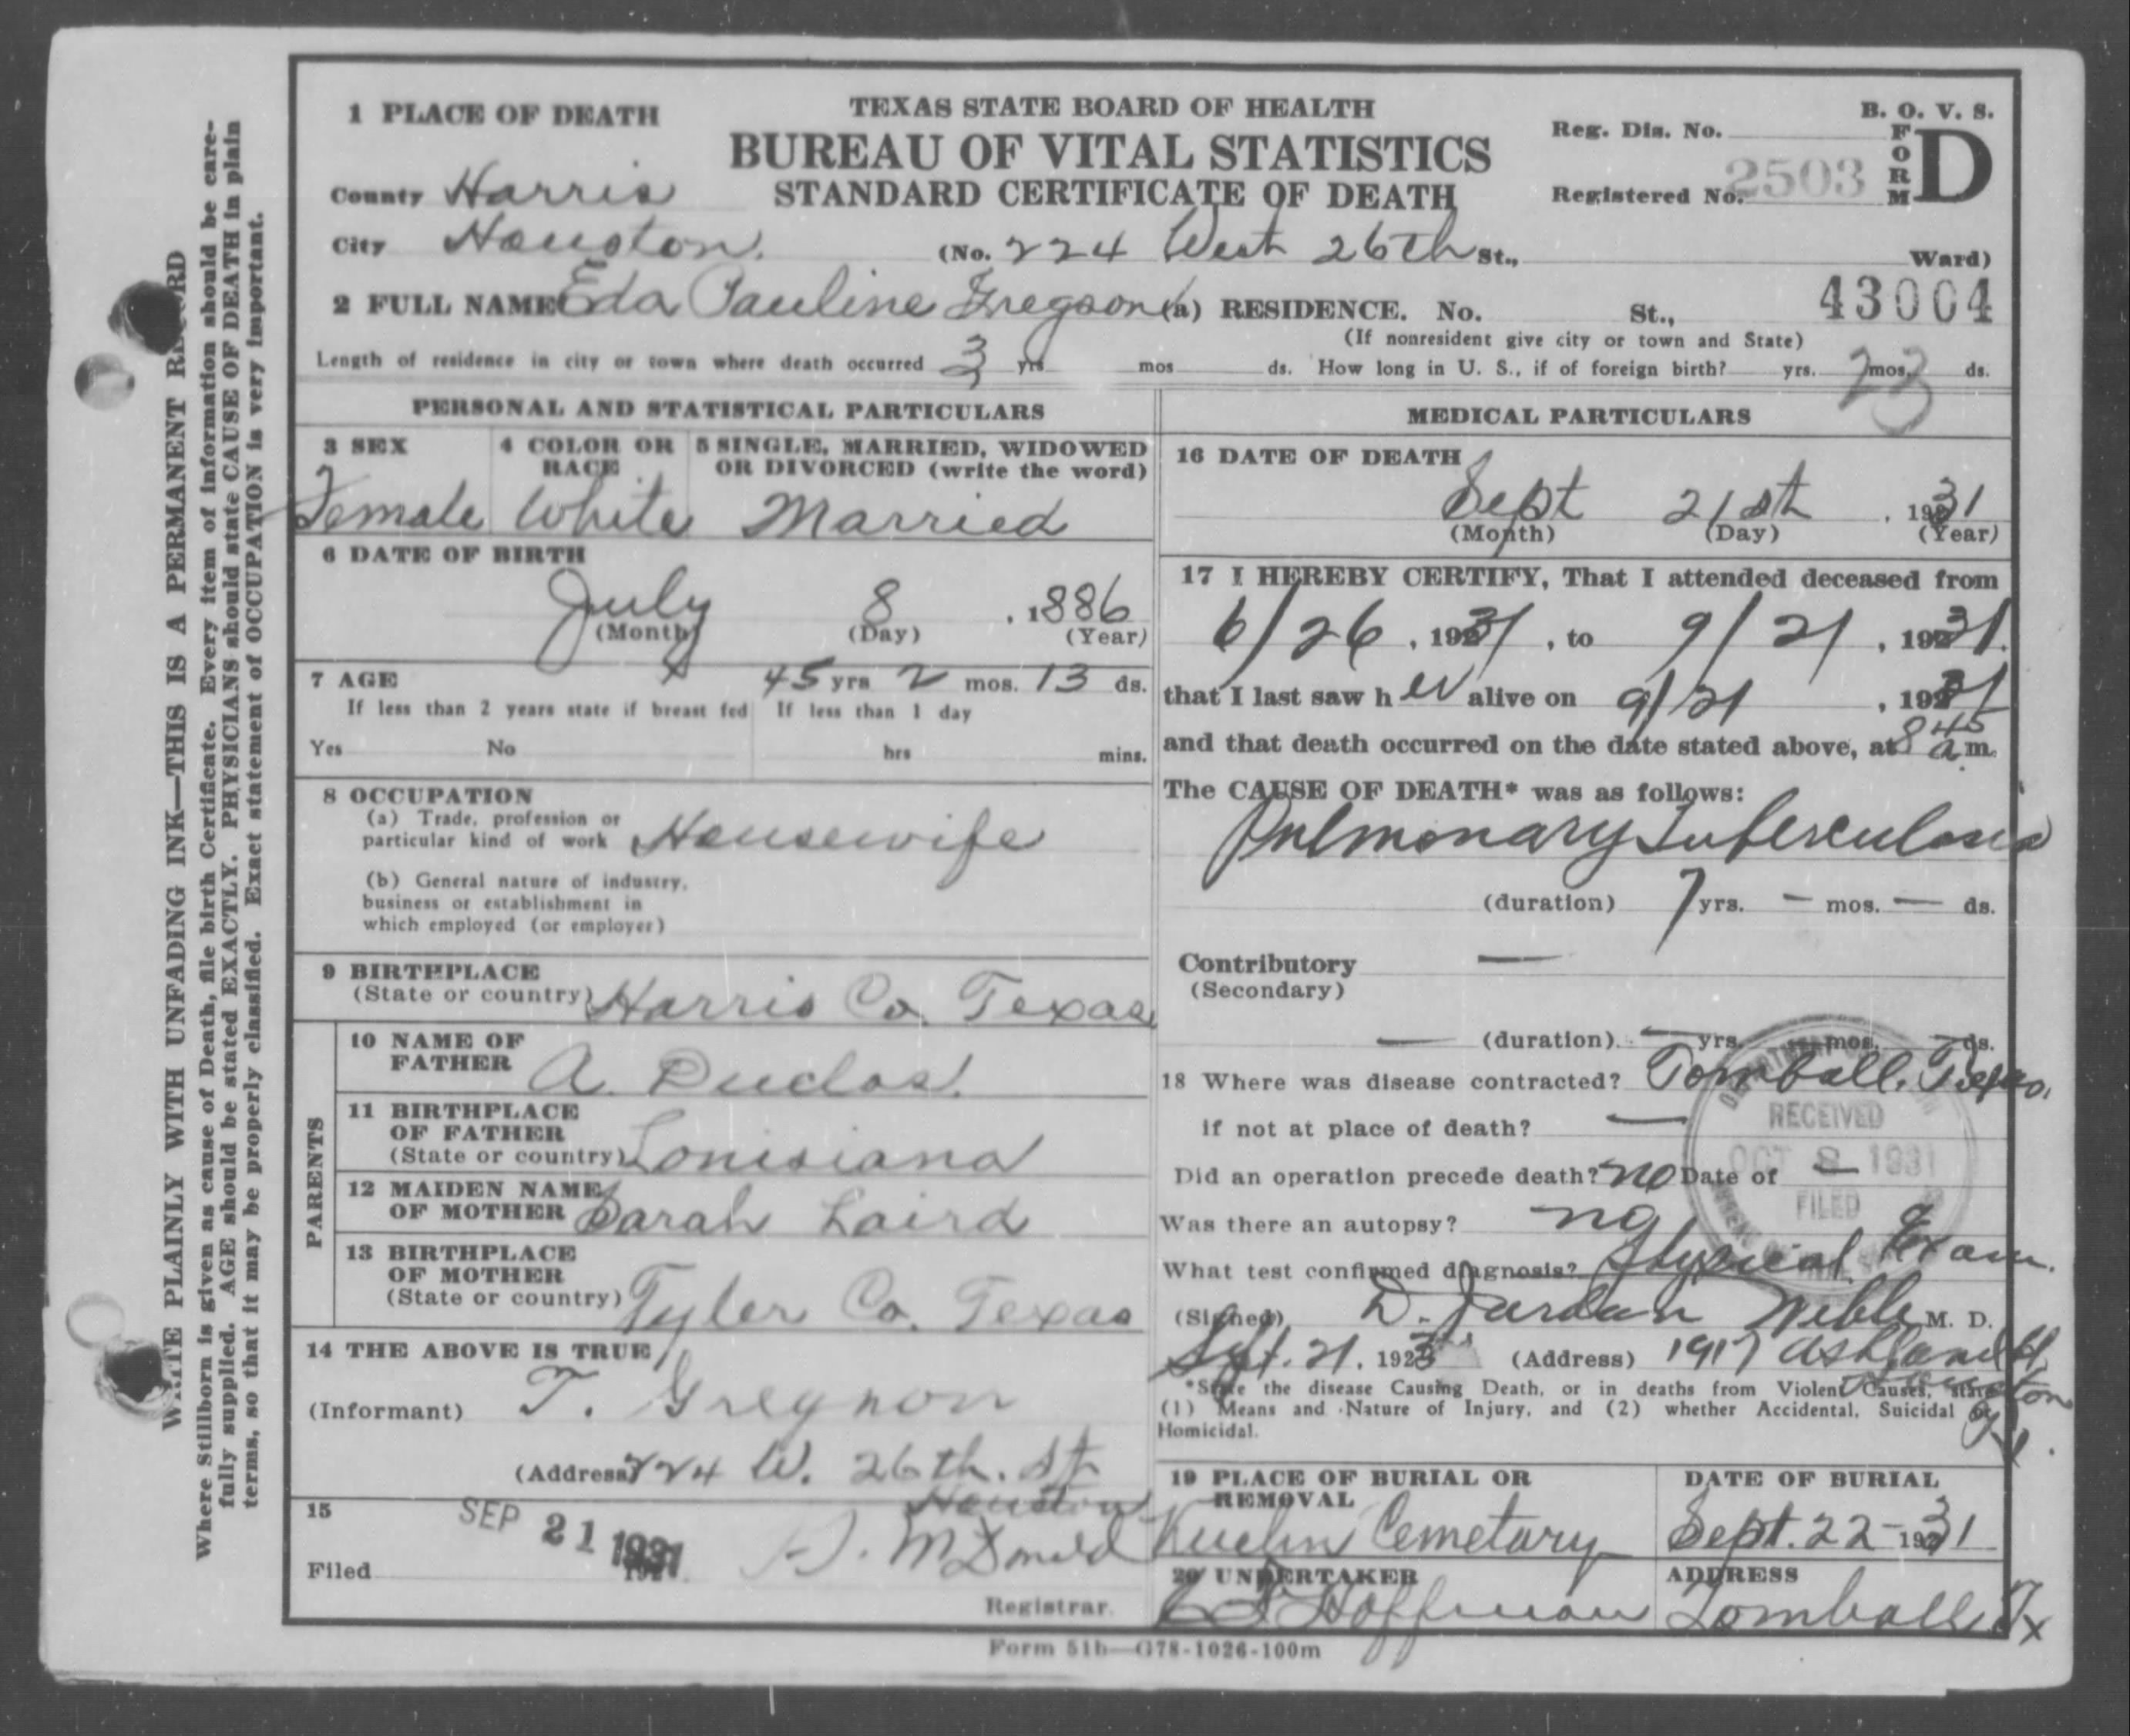 WRITE PLAINLY WITH UNFADING INK—THIS IS A PERMANENT RECORD
Where Stillborn is given as cause of Death, file birth Certificate. Every item of information should be care-
fully supplied. AGE should be stated EXACTLY. PHYSICIANS should state CAUSE OF DEATH in plain
terms, so that it may be properly classified. Exact statement of OCCUPATION is very important.
TEXAS STATE BOARD OF HEALTH
BUREAU OF VITAL STATISTICS
STANDARD CERTIFICATE OF DEATH
B. O. V. S.
FORM D
Reg. Dis. No.
Registered No. 2503
1 PLACE OF DEATH
County Harris
City Houston. (No. 224 West 26th St., Ward)
2 FULL NAME Eda Pauline (a) RESIDENCE. No. St., 43004
(If nonresident give city or town and State)
Length of residence in city or town where death occurred 3 yrs mos ds. How long in U. S., if of foreign birth? yrs. mos. ds.
23
PERSONAL AND STATISTICAL PARTICULARS
3 SEX
Female
4 COLOR OR RACE
White
5 SINGLE, MARRIED, WIDOWED
OR DIVORCED (write the word)
Married
6 DATE OF BIRTH
July 8, 1886
(Month) (Day) (Year)
7 AGE 45 yrs 2 mos. 13 ds.
If less than 2 years state if breast fed If less than 1 day
Yes No hrs mins.
8 OCCUPATION
(a) Trade, profession or
particular kind of work Housewife
(b) General nature of industry,
business or establishment in
which employed (or employer)
9 BIRTHPLACE
(State or country) Harris Co. Texas
PARENTS
10 NAME OF
FATHER A. Duclos.
11 BIRTHPLACE
OF FATHER
(State or country) Louisiana
12 MAIDEN NAME
OF MOTHER Sarah Laird
13 BIRTHPLACE
OF MOTHER
(State or country) Tyler Co. Texas
14 THE ABOVE IS TRUE
(Informant) T.
(Address) 224 W. 26th. St
Houston
15
Filed SEP 21 1931 McDonald
Registrar.
MEDICAL PARTICULARS
16 DATE OF DEATH
Sept 21st, 1931
(Month) (Day) (Year)
17 I HEREBY CERTIFY, That I attended deceased from
6/26, 1931, to 9/21, 1931.
that I last saw her alive on 9/21, 1931
and that death occurred on the date stated above, at 8 45 a.m.
The CAUSE OF DEATH* was as follows:
Pulmonary Tuberculosis
(duration) 7 yrs. — mos. — ds.
Contributory —
(Secondary)
— (duration). — yrs. — mos. — ds.
18 Where was disease contracted? Tomball. Texas.
if not at place of death? —
Did an operation precede death? no Date of —
Was there an autopsy? no
What test confirmed diagnosis? Physical Exam.
RECEIVED
OCT 8 1931
FILED
(Signed) D. Jordan M. D.
Sept. 21, 193 (Address) 1917 Ashland St,
Houston
*State the disease Causing Death, or in deaths from Violent Causes, state
(1) Means and Nature of Injury, and (2) whether Accidental, Suicidal or
Homicidal.
19 PLACE OF BURIAL OR
REMOVAL
Kuehn Cemetary
DATE OF BURIAL
Sept. 22-1931
20 UNDERTAKER
Hoffman
ADDRESS
Tomball Tx
Form 51b—G78-1026-100m